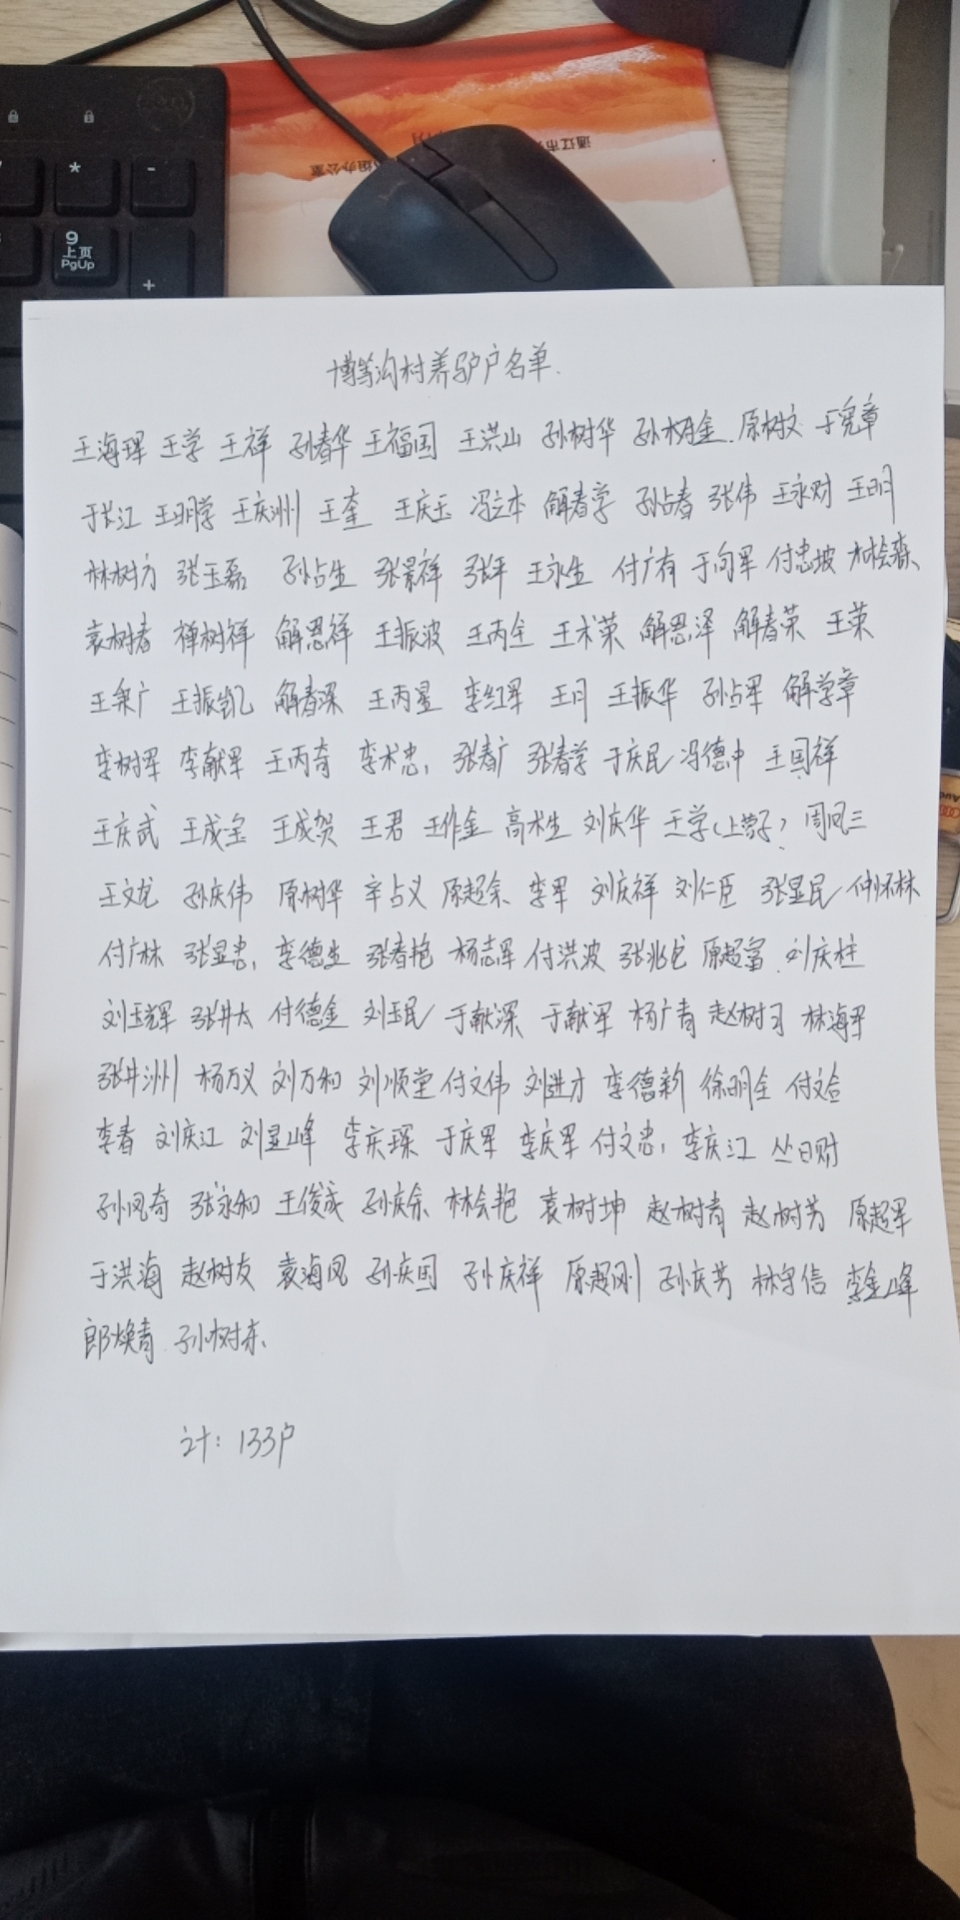 *
-
9
上页
PgUp
+
通辽市
组办公室
博等沟村养驴户名单.
王海珲 王学 王祥 孙春华 王福国 王洪山 孙树华 孙树金 原树文 于宪章
于长江 王明学 王庆洲 王奎 王庆玉 冯立本 解春学 孙占春 张伟 王永财 王明
林树方 张玉磊 孙占生 张景祥 张平 王永生 付广有 于向军 付忠坡 林桧森
袁树春 禅树祥 解恩祥 王振波 王丙全 王术荣 解恩泽 解春荣 王荣
王秉广 王振凯 解春深 王丙星 李红军 王月 王振华 孙占军 解学章
李树军 李献军 王丙奇 李术忠 张春广 张春学 于庆民 冯德中 王国祥
王庆武 王成宝 王成贺 王君 王作金 高术生 刘庆华 王学(上营子) 周凤三
王文龙 孙庆伟 原树华 辛占义 原超余 李军 刘庆祥 刘仁臣 张显民 仲怀林
付广林 张显忠 李德生 张春艳 杨志军 付洪波 张兆龙 原超富 刘庆柱
刘玉辉 张井太 付德金 刘玉民 于献深 于献军 杨广青 赵树习 林海军
张井洲 杨万义 刘万和 刘顺堂 付文伟 刘进才 李德新 徐明全 付文会
李春 刘庆江 刘显峰 李庆琛 于庆军 李庆军 付文忠 李庆江 丛日财
孙凤奇 张永和 王俊成 孙庆余 林会艳 袁树坤 赵树青 赵树芳 原超军
于洪海 赵树友 袁海凤 孙庆国 孙庆祥 原超刚 孙庆芳 林守信 李金峰
郎焕青 孙树东
计: 133户